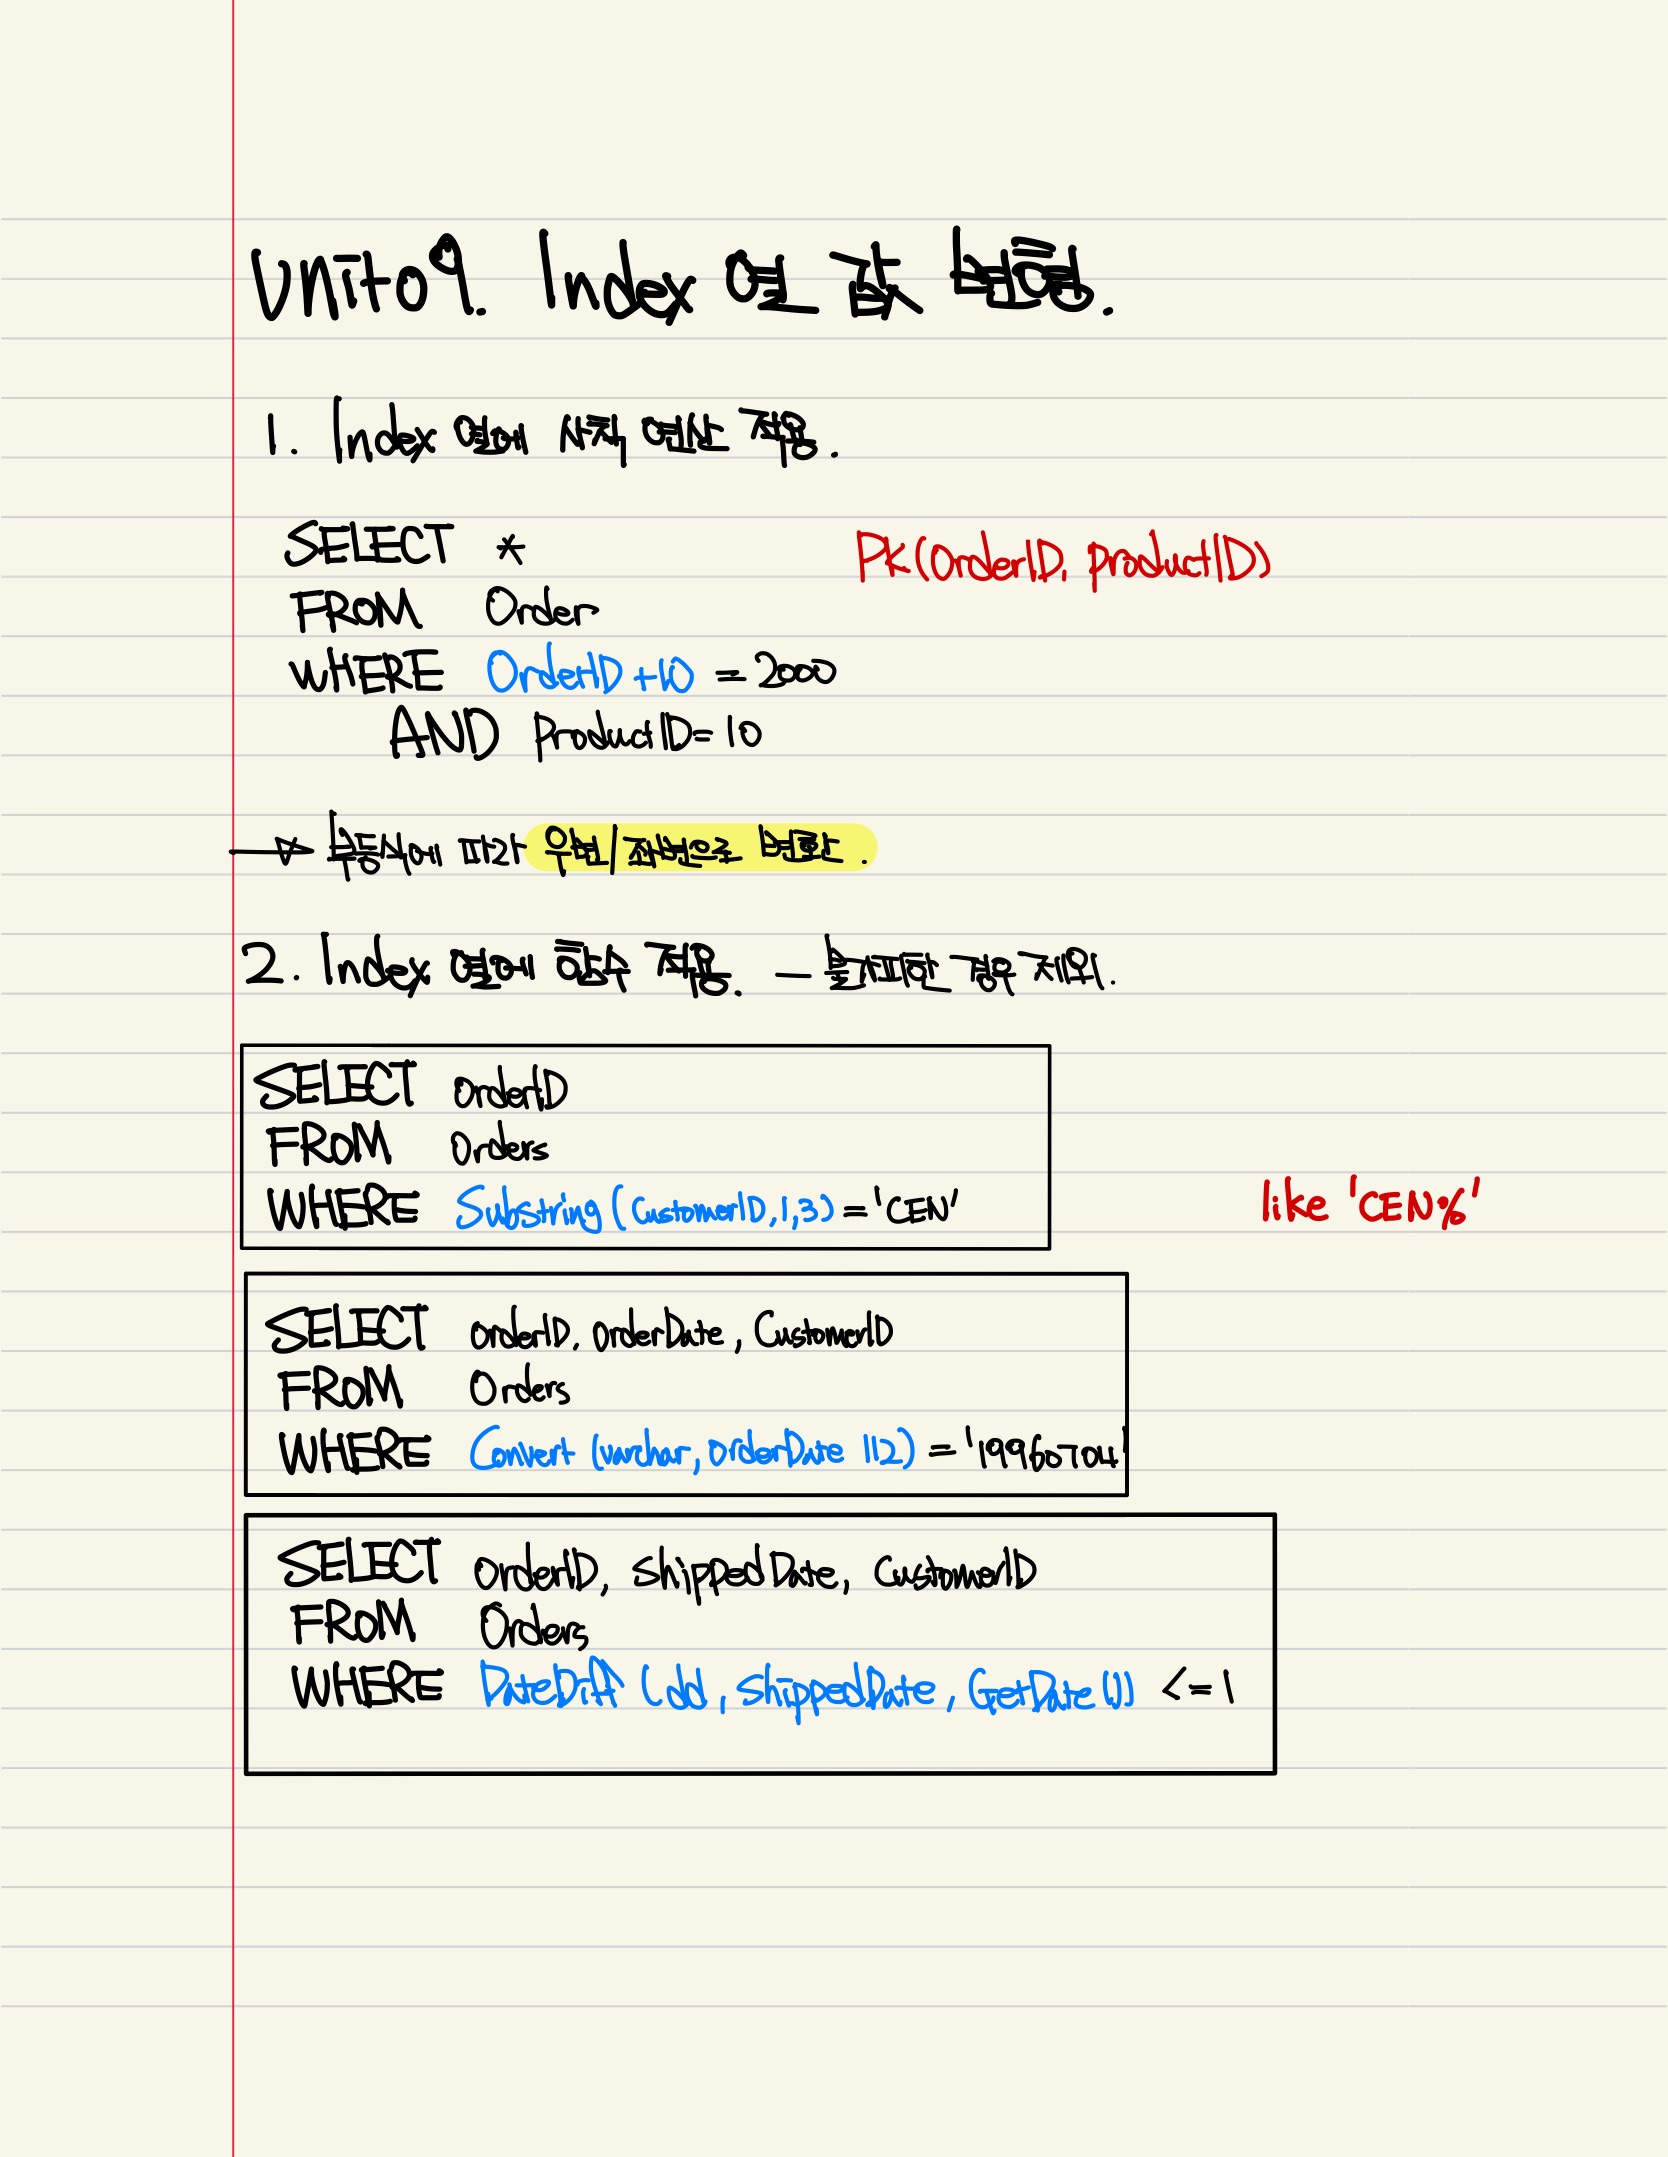 Unit09. Index 열 값 변형.
1. Index 열에 사칙 연산 적용.
SELECT *
PK(OrderID, productID)
FROM Order
WHERE OrderID+10 = 2000
AND ProductID= 10
→ 부등식에 따라 우변/좌변으로 변환.
2. Index 열에 함수 적용. - 불가피한 경우 제외.
SELECT OrderID
FROM Orders
WHERE Substring (CustomerID,1,3) = 'CEN'
like 'CEN%'
SELECT OrderID, OrderDate, CustomerID
FROM Orders
WHERE Convert (varchar, OrderDate 112) = '19960704'
SELECT OrderID, ShippedDate, CustomerID
FROM Orders
WHERE DateDiff (dd, ShippedDate, GetDate()) <=1